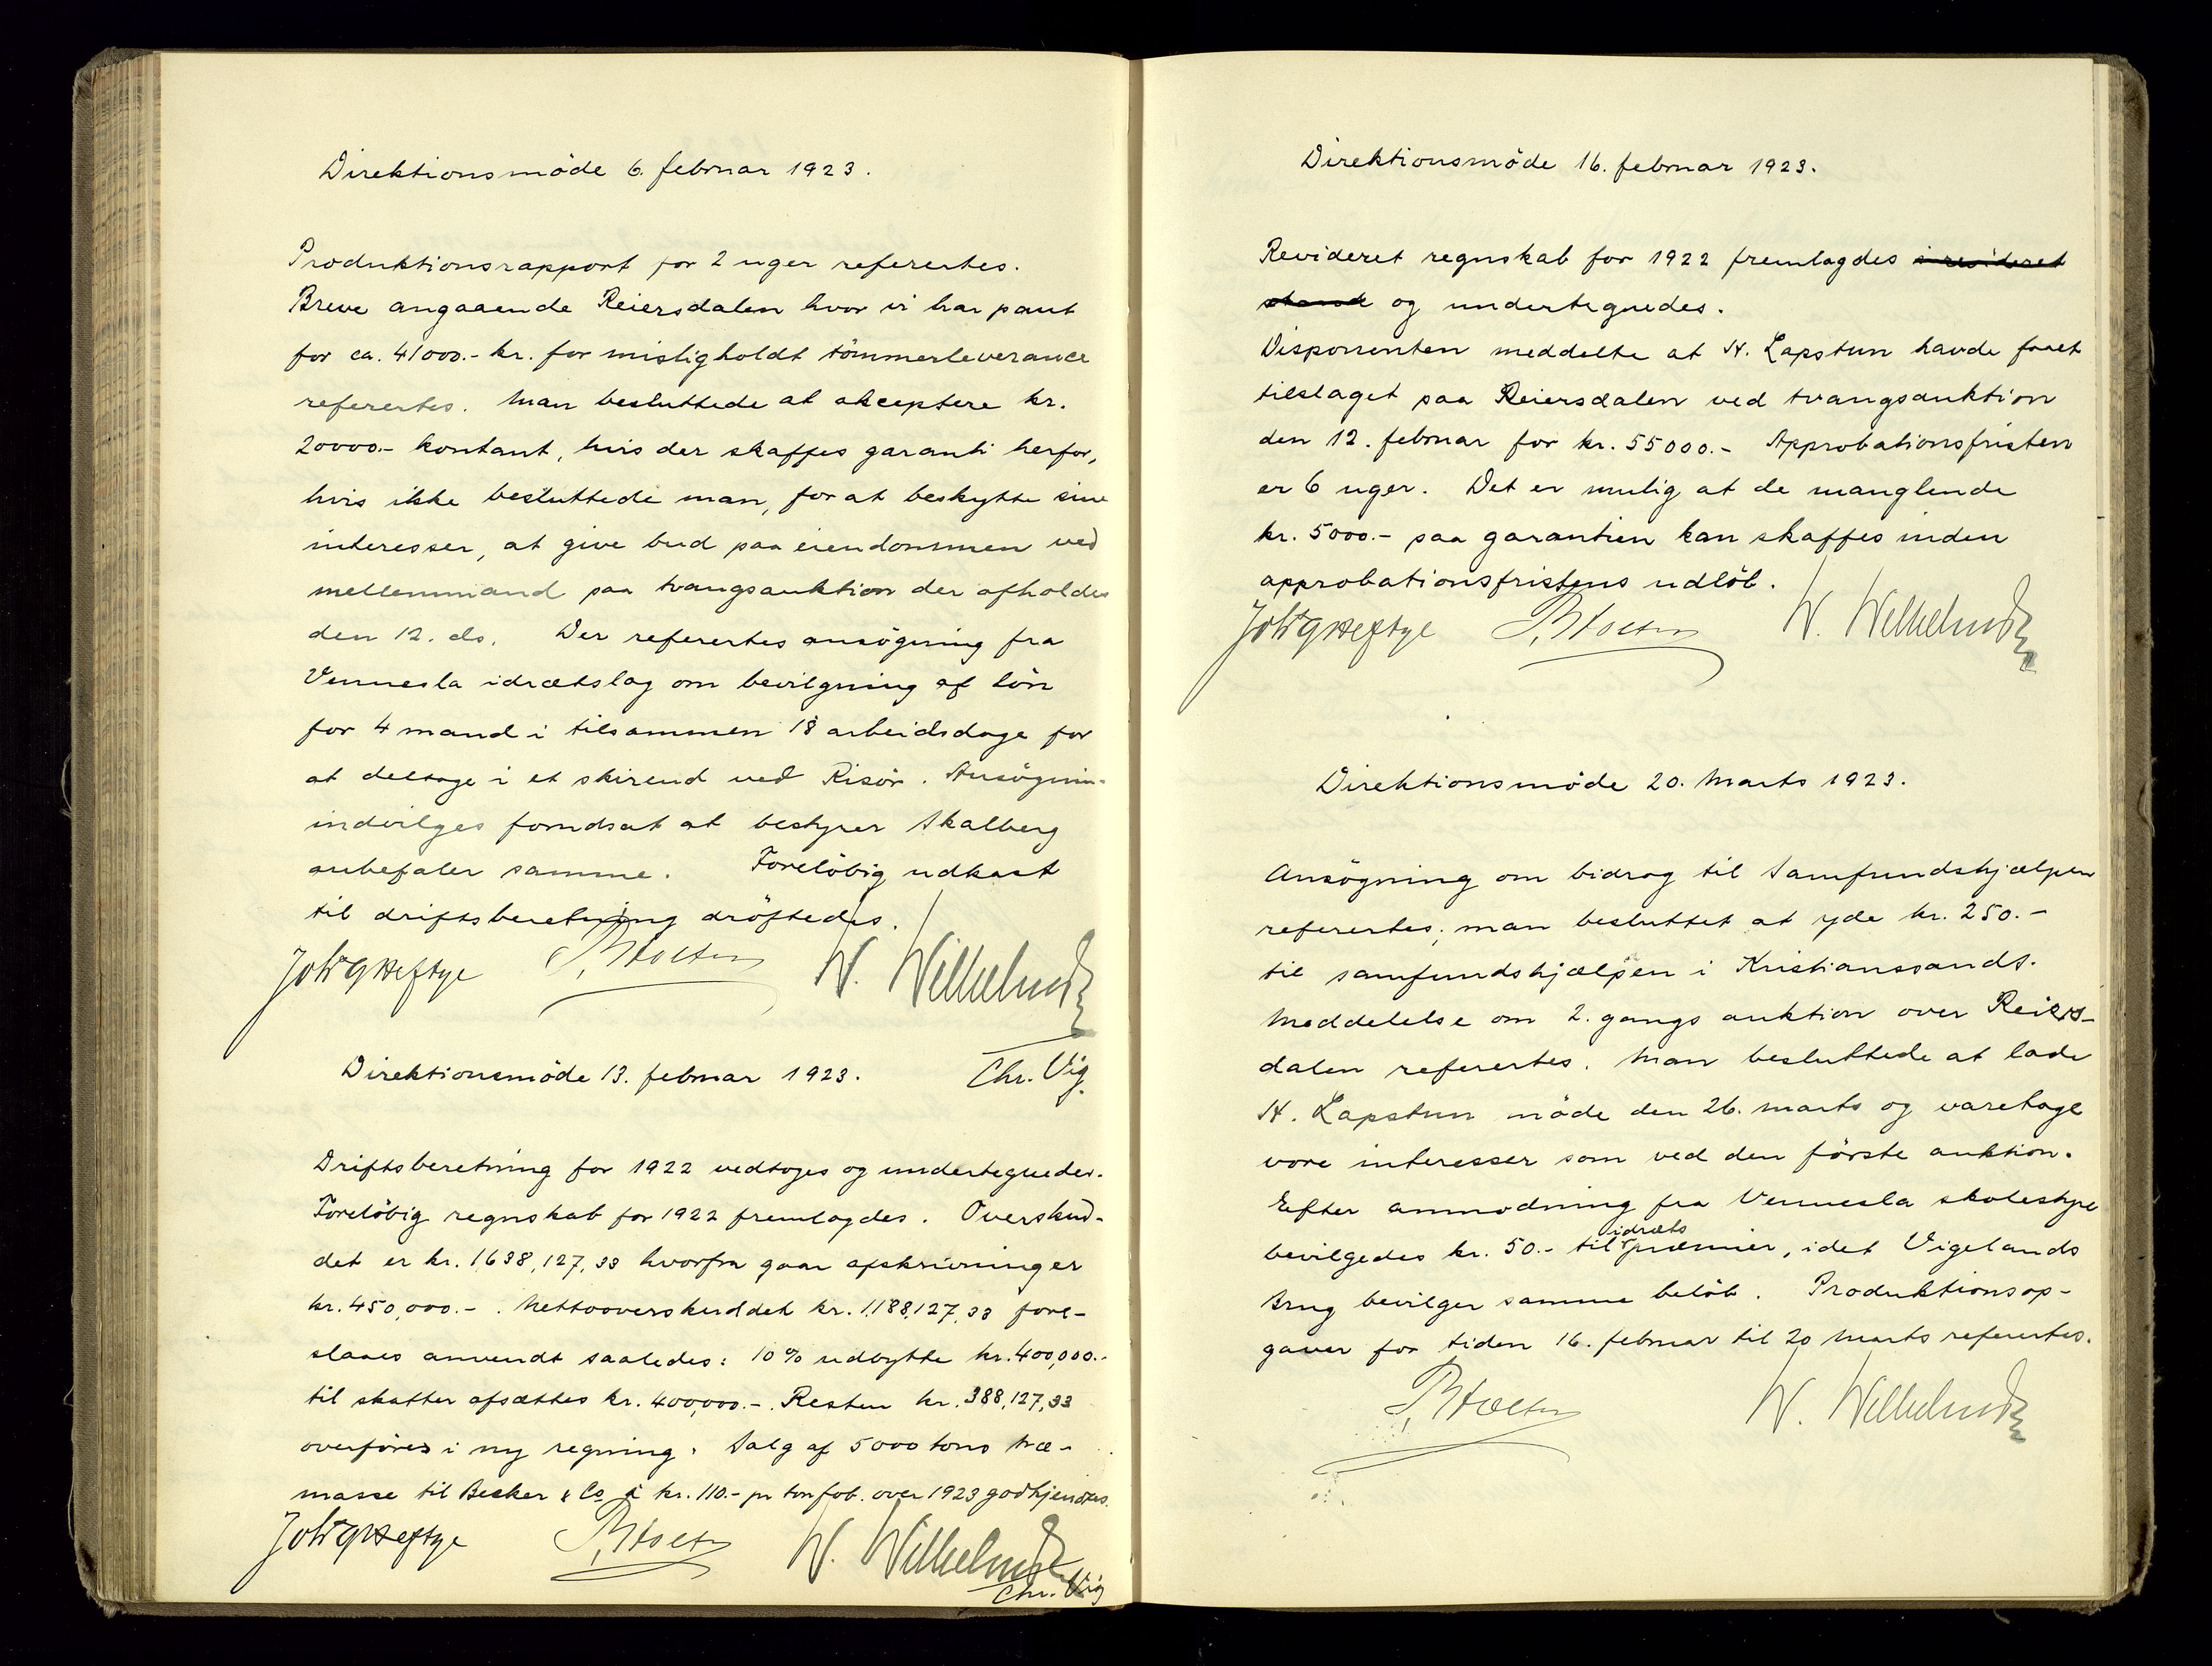 Direktionsmöde 6. februar 1923.
Produktionsrapport for 2 uger referertes.
Breve angaaende Reiersdalen hvor vi har pant
for ca. 41000.- kr. for misligholdt tömmerleverance
referertes. Man besluttede at akceptere kr.
20000.- kontant, hvis der skaffes garanti herfor,
hvis ikke besluttede man, for at beskytte sine
interesser, at give bud paa eiendommen ved
mellemmand paa tvangsauktion der afholdes
den 12. ds. Der referertes ansögning fra
Vennesla idrætslag om bevilgning af lön
for 4 mand i tilsammen 18 arbeidsdage for
at deltage i et skirend ved Risör. Ansögnin-
indvilges forudsat at bestyrer Skalberg
anbefaler samme. Foreløbig udkast
til driftsberetning dröftedes.
Joh G Heftye P. Stoltz W. Wilhelmsen
Chr. Vig.
Direktionsmöde 13. februar 1923.
Driftsberetning for 1922 vedtoges og undertegnedes.
Forelöbig regnskab for 1922 fremlagdes. Overskud-
det er kr. 1,638,127,33 hvorfra gaar afskrivninger
kr. 450,000.-. Nettooverskuddet kr. 1,188,127,33 fore-
slaaes anvendt saaledes: 10% udbytte kr. 400,000.-
til skatter afsættes kr. 400,000.-. Resten kr. 388,127,33
overföres i ny regning. Salg af 5000 tons træ-
masse til Becker & Co à kr. 110.- pr ton fob. over 1923 godkjendtes.
Joh G Heftye P. Stoltz W. Wilhelmsen
Chr. Vig
Direktionsmöde 16. februar 1923.
Revideret regnskab for 1922 fremlagdes i revideret
stand og undertegnedes.
Disponenten meddelte at N. Lapstun havde faaet
tilslaget paa Reiersdalen ved tvangsauktion
den 12. februar for kr. 55000.- Approbationsfristen
er 6 uger. Det er mulig at de manglende
kr. 5000.- paa garantien kan skaffes inden
approbationsfristens udlöb.
Joh G Heftye P. Stoltz W. Wilhelmsen
Direktionsmöde 20. Marts 1923.
Ansögning om bidrag til Samfundshjælpen
referertes; man besluttet at yde kr. 250.-
til samfundshjælpen i Kristianssands.
Meddelelse om 2. gangs auktion over Reiers-
dalen referertes. Man besluttede at lade
N. Lapstun möde den 26. marts og varetage
vore interesser som ved den förste auktion.
Efter anmodning fra Vennesla skolestyre
bevilgedes kr. 50.- til idrætspræmier, idet Vigelands
Brug bevilger samme belöb. Produktionsop-
gaver for tiden 16. februar til 20 Marts referertes.
P. Stoltz W. Wilhelmsen